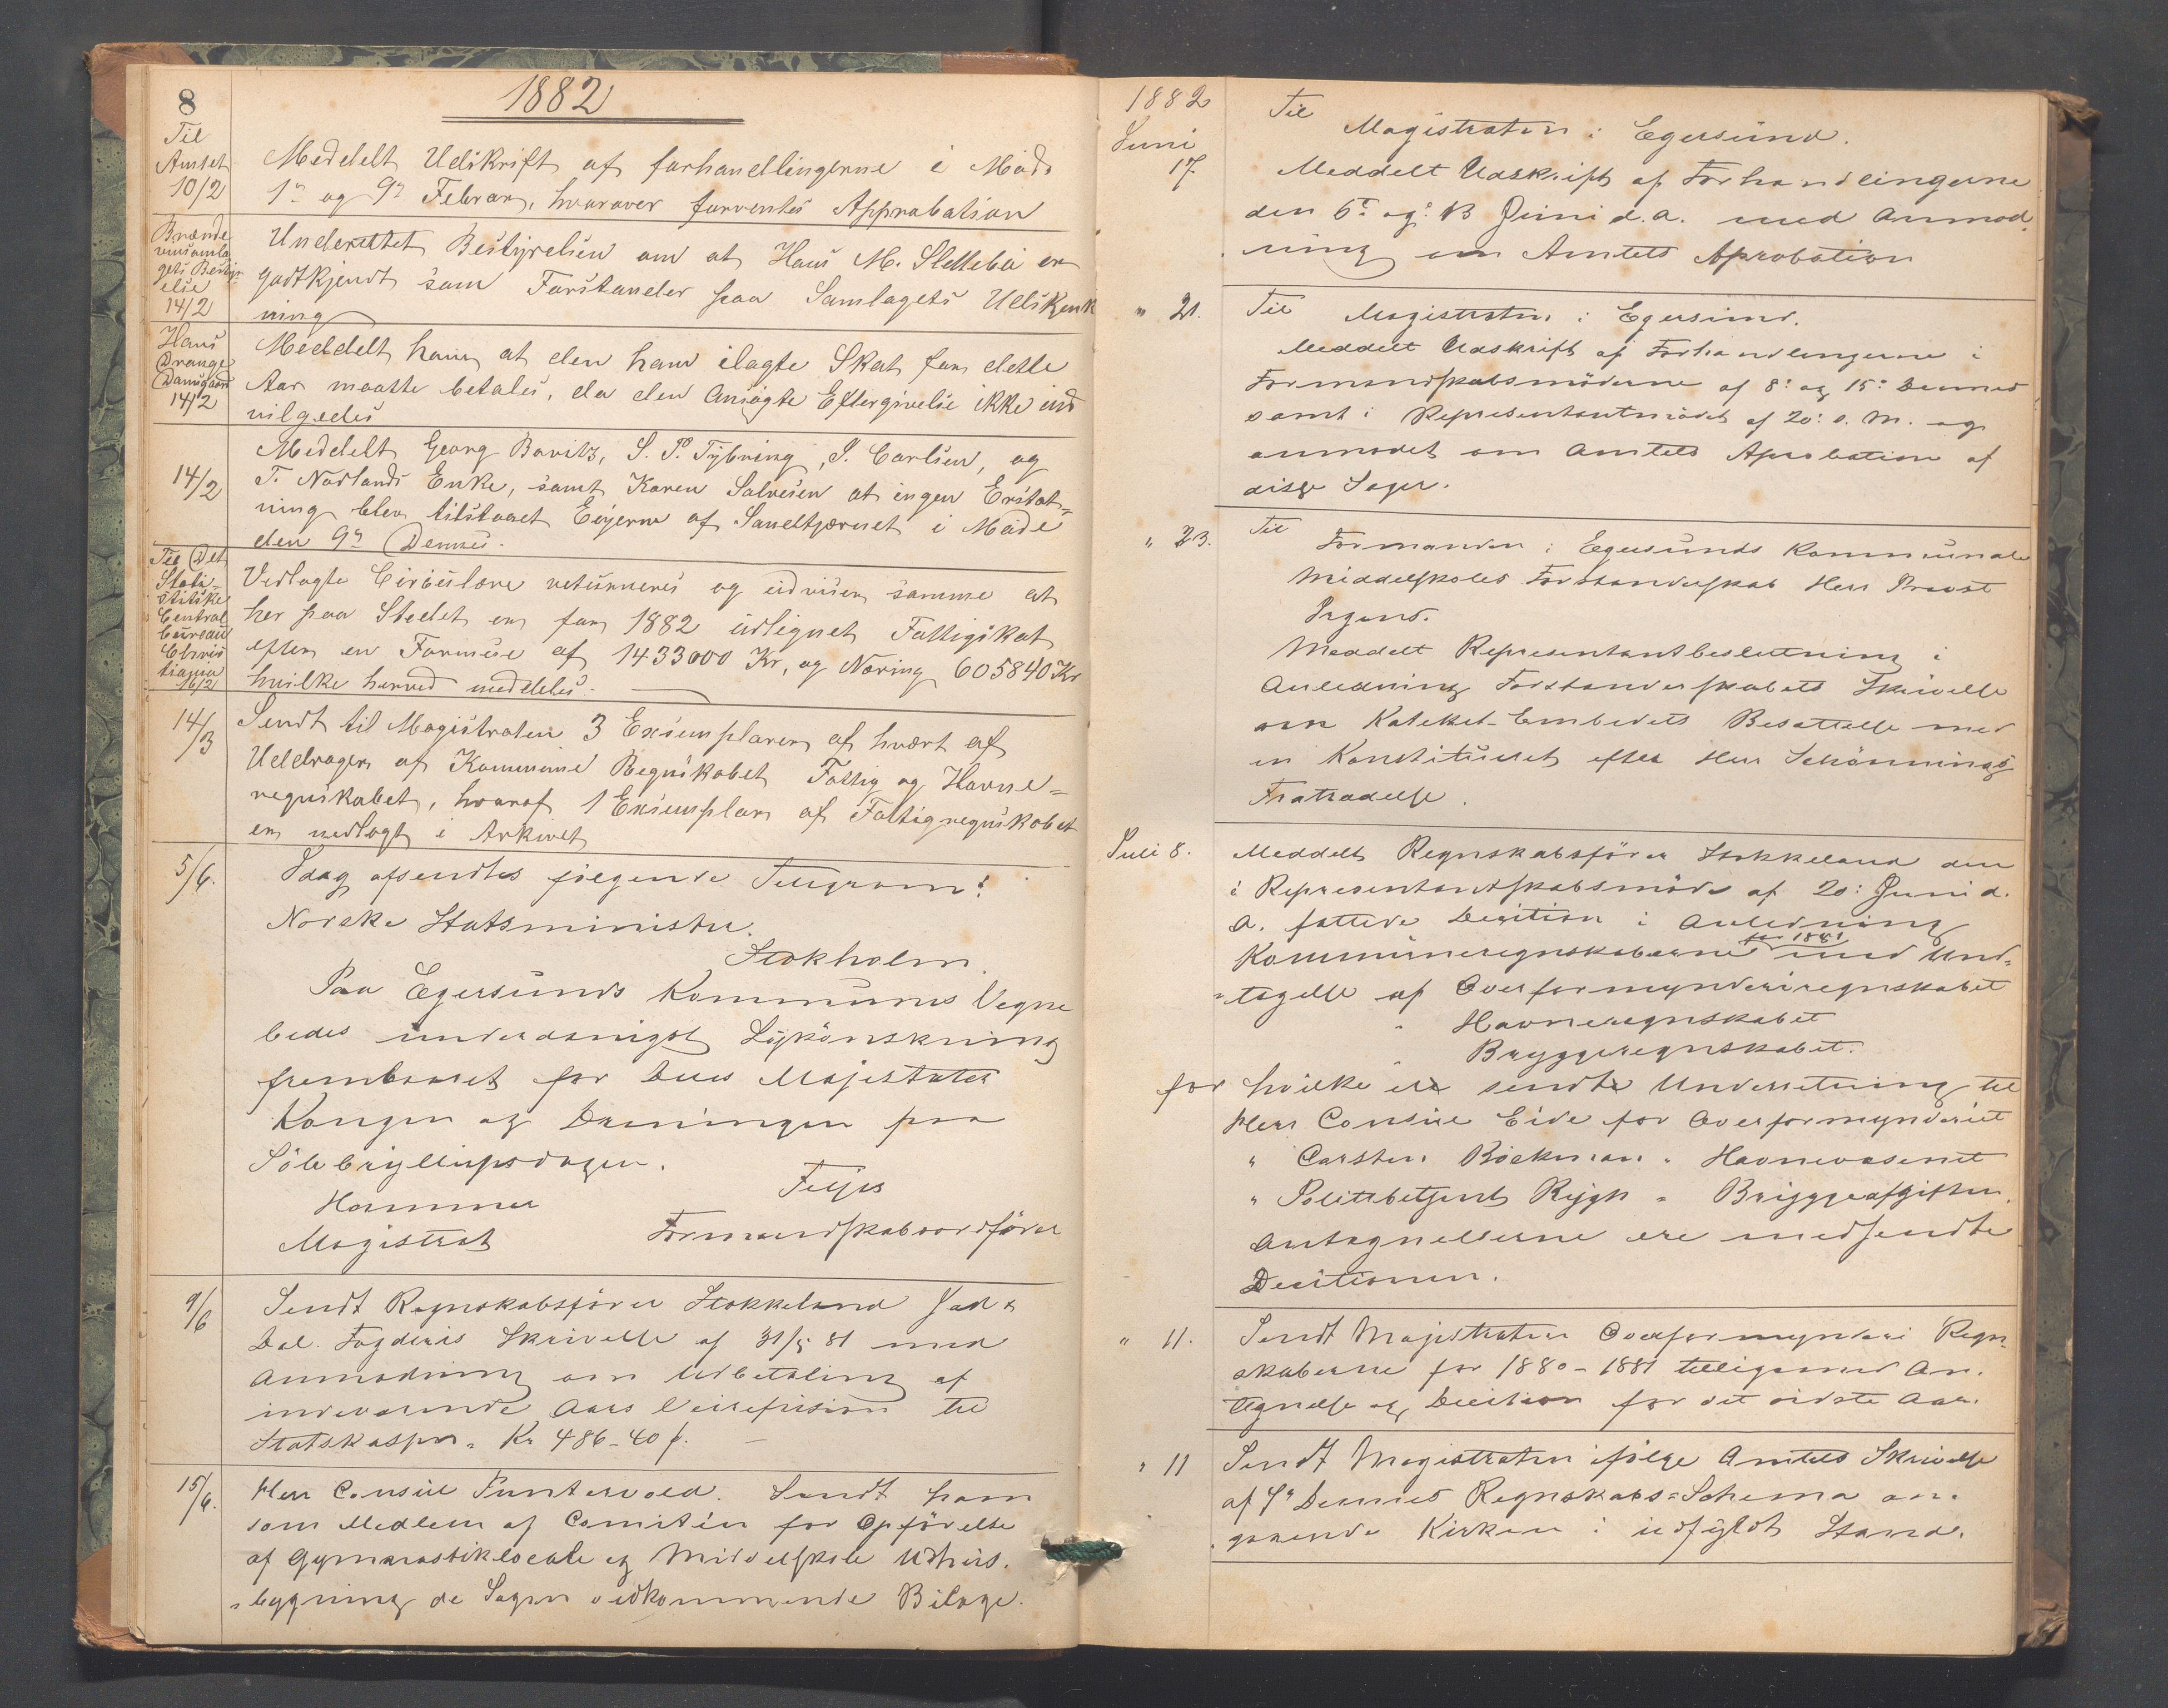 8
1882
Til
Amtet
10/2
Meddelt Udskrift af forhandlingerne i Møde
1ste og 9de Februar, hvorover forventes Approbation
Brænde
vinsamla
gets Bestyr
else
14/2
Underrettet Bestyrelsen om at Hans M. Slettebø er
godtkjendt som Forstander paa Samlagets Udskjænk
ning
Hans
Drange
Damsgaard
14/2
Meddelt ham at den ham ilagte Skat for dette
Aar maatte betales, da den ansøgte Eftergivelse ikke ind
vilgedes
14/2
Meddelt Georg Bavitz, S. P. Tybring, J. Carlsen, og
T. Nodlands Enke, samt Karen Salvesen at ingen Erstat=
ning blev tilstaaet Eierne af Sandkjærnet i Møde
den 9de Dennes.
Til Det
Stati-
stitske
Central
bureau
Chris
tiania
16/2
Vedlagte Circulære returneres og udviser samme at
her paa Stedet er for 1882 udlignet Fattigskat
efter en Formue af 1433000 Kr, og Næring 605840 Kr
hvilke herved meddeles.
14/3
Sendt til Magistraten 3 Exsemplarer af hvert af
Uddrager af Kommune Regnskabet Fattig og Havne=
regnskabet, hvoraf 1 Exsemplar af Fattigregnskabet
er nedlagt i Arkivet
5/6.
Idag afsendtes følgende Telegram:
Norske Statsminister.
Stokholm.
Paa Egersunds Kommunes Vegne
bedes underdanigst Lykønskning
frembaaret for Deres Majestæter
Kongen og Dronningen paa
Sølvbryllupsdagen.
Hammer
Feyer
Magistrat
Formandskabsordfører
9/6
Sendt Regnskabsfører Stokkeland Jæd. &
Dal. Fogderis Skrivelse af 31/5 81 med
Anmodning om Udbetaling af
indeværende Aars Veirefusion til
Statskassen. Kr 486-40 ø.
15/6.
Herr Consul Puntervold. Sendt ham
som Medlem af Comiteen for Opførelse
af Gymnastiklocale og Middelskole Udhus.
bygning de Sagen vedkommende Bilage.
1882
Juni
17.
Til
Magistraten i Egersund.
Meddelt Udskrift af Forhandlingerne
den 6te og 13 Juni d.A. med Anmod.
ning om Amtets Aprobation
" 21.
Til Magistraten i Egersund.
Meddelt Udskrift af Forhandlingerne i
Formandskabsmøderne af 8: og 15: Dennes
samt i Representantmødet af 20: d. M. og
anmodet om Amtets Aprobation af
disse Sager.
" 23.
Til
Formanden i Egersunds Kommunale
Middelskoles Forstanderskab Herr Provst
Irgens.
Meddelt Representantbeslutning i
Anledning Forstanderskabets Skrivelse
om Kateket-Embedets Besættelse med
en Konstitueret efter Herr Schønnings
Fratrædelse.
Juli 8.
Meddelt Regnskabsfører Stokkeland den
i Representantskabsmøde af 20: Juni d.
A. fattede Decition i Anledning
Kommuneregnskaberne for 1881 med Und=
=tagelse af Overformynderiregnskabet
" Havneregnskabet
" Bryggeregnskabet.
for hvilke er sendt Underretning til
Herr Consul Eide for Overformynderiet
" Carsten Bøckman " Havnevæsenet
" Politibetjent Rygh " Bryggeafgiften.
Antegnelserne ere medsendte
Decitionen.
" 11.
Sendt Magistraten Overformynderi Regn=
skaberne for 1880-1881 tilligemed An.
tegnelse og Decition for det sidste Aar.
" 11
Sendt Magistraten ifølge Amtets Skrivelse
af 4de Dennes Regnskabs=Schema an.
gaaende Kirken i udfyldt Stand.